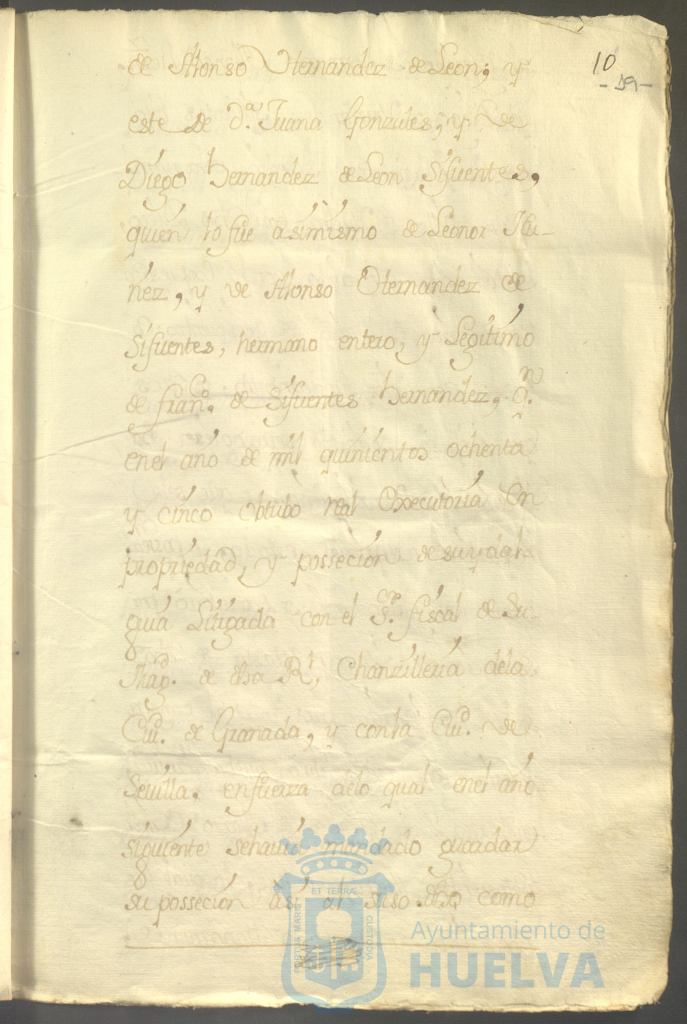 10
- D9 -
de Alonso Hernandez de Leon; y
este de D.ª Juana Gonzales, y de
Diego hernandez de Leon Sifuentes,
quien lo fue asimismo de Leonor Nu-
ñez, y de Alonso Hernandez de
Sifuentes, hermano entero, y Legitimo
de fran.co de Sifuentes hernandez, q.n
en el año de mil quinientos ochenta
y cinco obtubo real Executoria en
propriedad, y possecion de su ydal-
guia Litigada con el S.r fiscal de Su
Mag.d de dha R.l Chanzilleria dela
Ciu.d de Granada, y con la Ciu.d de
Sevilla. en fuerza delo qual en el año
siguiente se havia mandado guardar
su possecion asi al suso dho como
ET TERRÆ
PORTUS MARIS
CUSTODIA
Ayuntamiento de
HUELVA